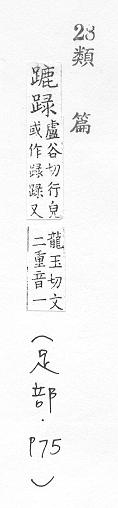 28
類篇
蹗
盧谷切行皃
或作 又
龍玉切文
二重音一
(足部·P75)